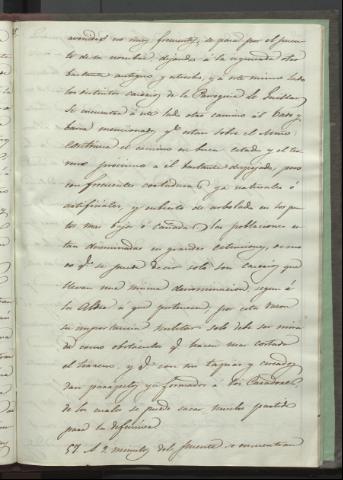 avenidas no muy frecuentes, se pasa por el puen-
te de su nombre dejandose a la izquierda otro
bastante antiguo y estrecho, y a este mismo lado
los distintos caserios de la Parroquia
Se encuentra a este lado otro camino al Vado y
barca mencionados, qe estan sobre el Miño.
Continua el camino en buen estado y el ter-
reno proximo a él bastante despejado, pero
con frecuentes cortaduras, ya naturales ó
artificiales, y cubierto de arbolado en los pun-
tos mas bajos ó cañadas; las poblaciones es-
tan diseminadas en grandes estensiones, como
no qe se puede decir solo son caserios que
llevan una misma denominacion segun á
la Aldea á que pertenecen, por esta razon
su importancia militar solo debe ser mira-
da como obstaculos qe hacen mas cortado
el terreno, y qe con sus tapias y cercados
dan parapetos ya formados á los Cazadores,
de los cuales se puede sacar mucho partido
para la defensiva
57 A 2 minutos del puente se encuentran